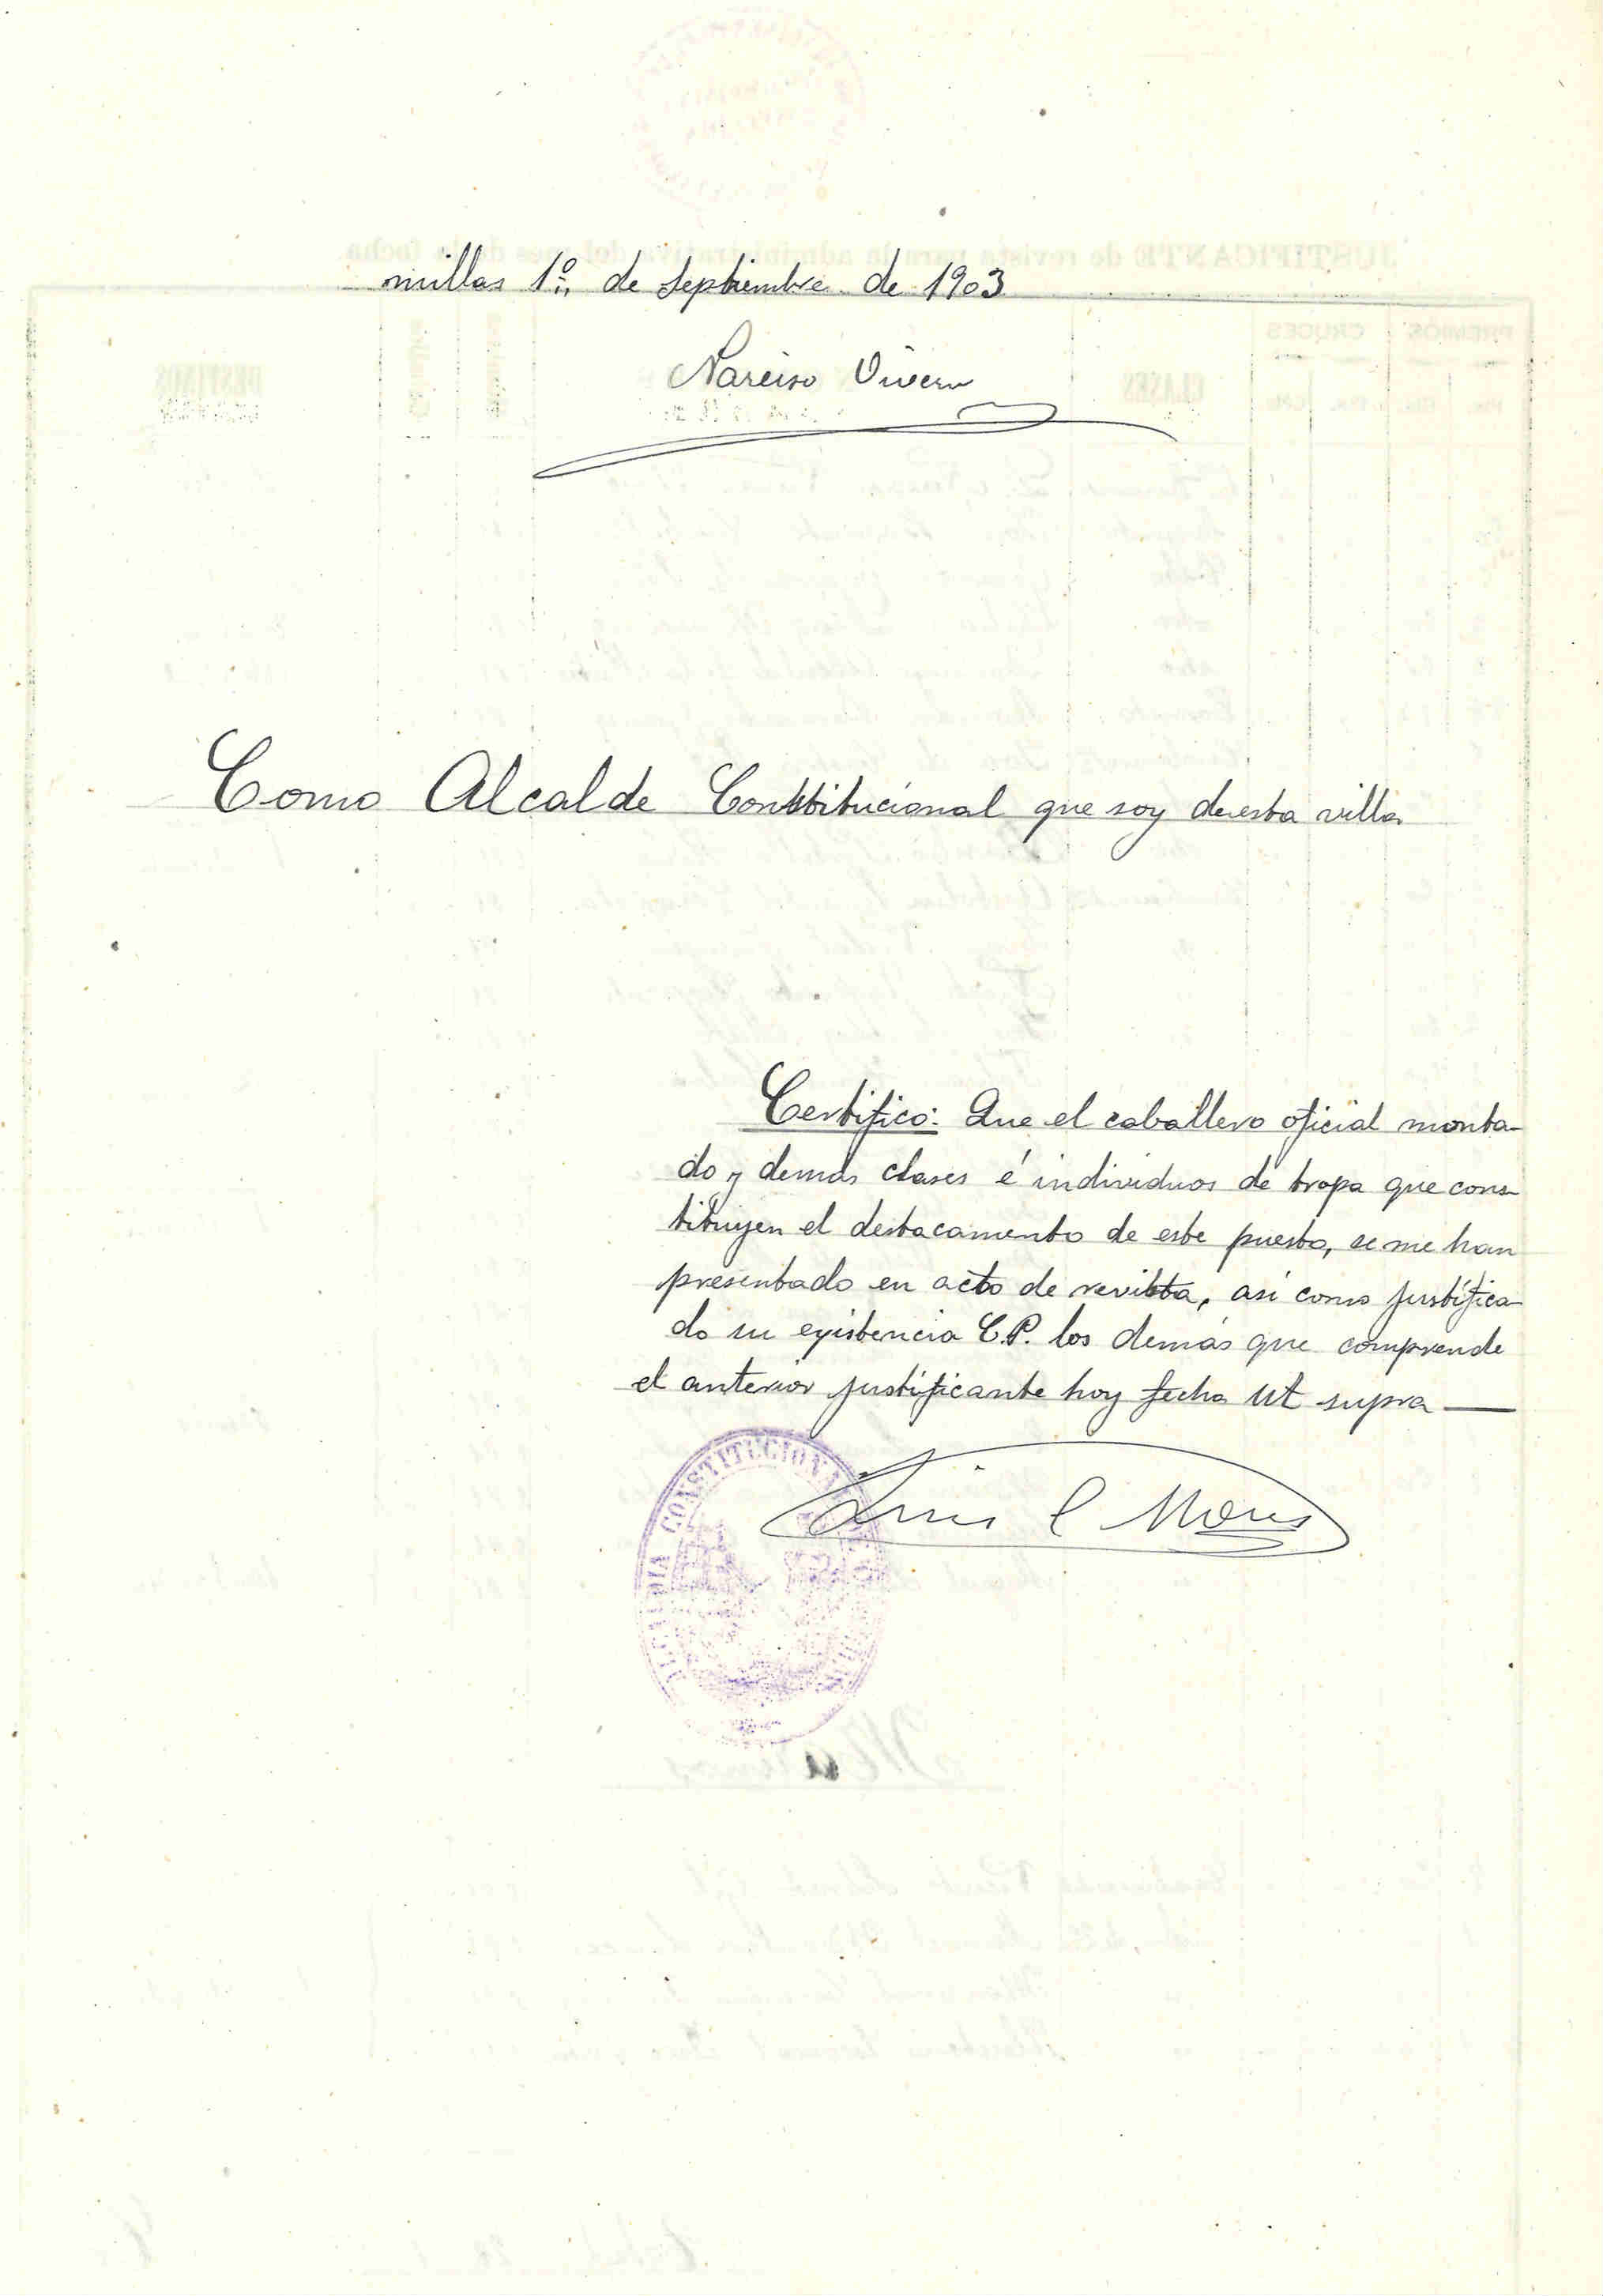 millas 1º de Septiembre de 1903
Narciso
Como Alcalde Constitucional que soy de esta villa
Certifico: Que el caballero oficial monta-
do y demás clases é individuos de tropa que cons-
tituyen el destacamento de este puesto, se me han
presentado en acto de revista, asi como justifica-
do su existencia C.P. los demás que comprende
el anterior justificante hoy fecha ut supra
Luis C Mons
CONSTITUCIONAL